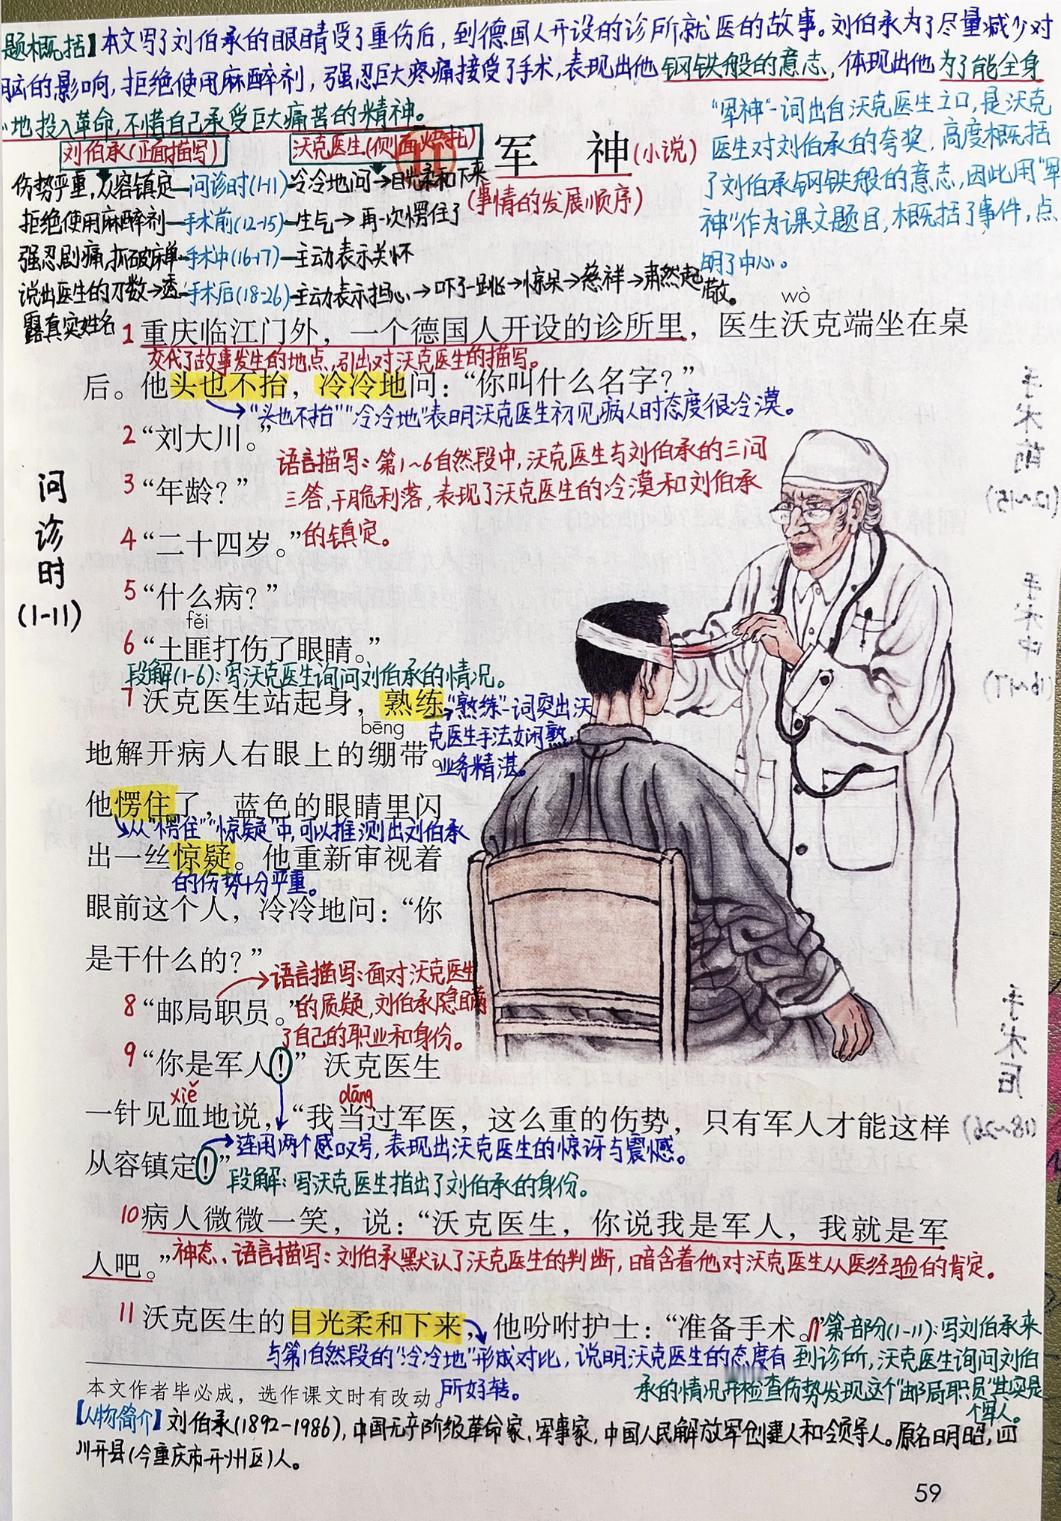 题概括】本文写了刘伯承的眼睛受了重伤后，到德国人开设的诊所就医的故事。刘伯承为了尽量减少对
脑的影响，拒绝使用麻醉剂，强忍巨大疼痛接受了手术，表现出他钢铁般的意志，体现出他为了能全身
地投入革命，不惜自己承受巨大痛苦的精神。
刘伯承(正面描写)
沃克医生(侧面烘托)
11 军神(小说)
(事情的发展顺序)
"军神"一词出自沃克医生之口，是沃克
医生对刘伯承的夸奖，高度概括
了刘伯承钢铁般的意志，因此用"军
神"作为课文题目，概括了事件，点
明了中心。
伤势严重，从容镇定—问诊时(1-11)—冷冷地问→目光柔和下来
拒绝使用麻醉剂—手术前(12-15)—生气→再一次愣住了
强忍剧痛，抓破床单—手术中(16-17)—主动表示关怀
说出医生的刀数→透—手术后(18-26)—主动表示担心→吓了一跳→惊呆→慈祥→肃然起敬。
露真实姓名
wò
1 重庆临江门外，一个德国人开设的诊所里，医生沃克端坐在桌
交代了故事发生的地点，引出对沃克医生的描写。
后。他头也不抬，冷冷地问：“你叫什么名字？”
"头也不抬""冷冷地"表明沃克医生初见病人时态度很冷漠。
2 “刘大川。”
语言描写：第1~6自然段中，沃克医生与刘伯承的三问
三答，干脆利落，表现了沃克医生的冷漠和刘伯承
的镇定。
3 “年龄？”
4 “二十四岁。”
5 “什么病？”
fěi
6 “土匪打伤了眼睛。”
段解(1-6)：写沃克医生询问刘伯承的情况。
问诊时
(1-11)
7 沃克医生站起身，熟练
"熟练"一词突出沃
克医生手法娴熟，
业务精湛。
bēng
地解开病人右眼上的绷带。
他愣住了，蓝色的眼睛里闪
从"愣住""惊疑"中，可以推测出刘伯承
出一丝惊疑。他重新审视着
的伤势十分严重。
眼前这个人，冷冷地问：“你
是干什么的？”
语言描写：面对沃克医生
的质疑，刘伯承隐瞒
了自己的职业和身份。
8 “邮局职员。”
9 “你是军人！” 沃克医生
xiě
dāng
一针见血地说，“我当过军医，这么重的伤势，只有军人才能这样
连用两个感叹号，表现出沃克医生的惊讶与震憾。
从容镇定！”
段解：写沃克医生指出了刘伯承的身份。
10 病人微微一笑，说：“沃克医生，你说我是军人，我就是军
人吧。”
神态、语言描写：刘伯承默认了沃克医生的判断，暗含着他对沃克医生从医经验的肯定。
11 沃克医生的目光柔和下来，他吩咐护士：“准备手术。”
与第1自然段的"冷冷地"形成对比，说明沃克医生的态度有
所好转。
第一部分(1-11)：写刘伯承来
到诊所，沃克医生询问刘伯
承的情况并检查伤势发现这个"邮局职员"其实是
个军人。
本文作者毕必成，选作课文时有改动。
【人物简介】刘伯承(1892-1986)，中国无产阶级革命家、军事家，中国人民解放军创建人和领导人。原名明昭，四
川开县(今重庆市开州区)人。
59
手术前
(12~15)
手术中
(16~17)
手术后
(18~26)